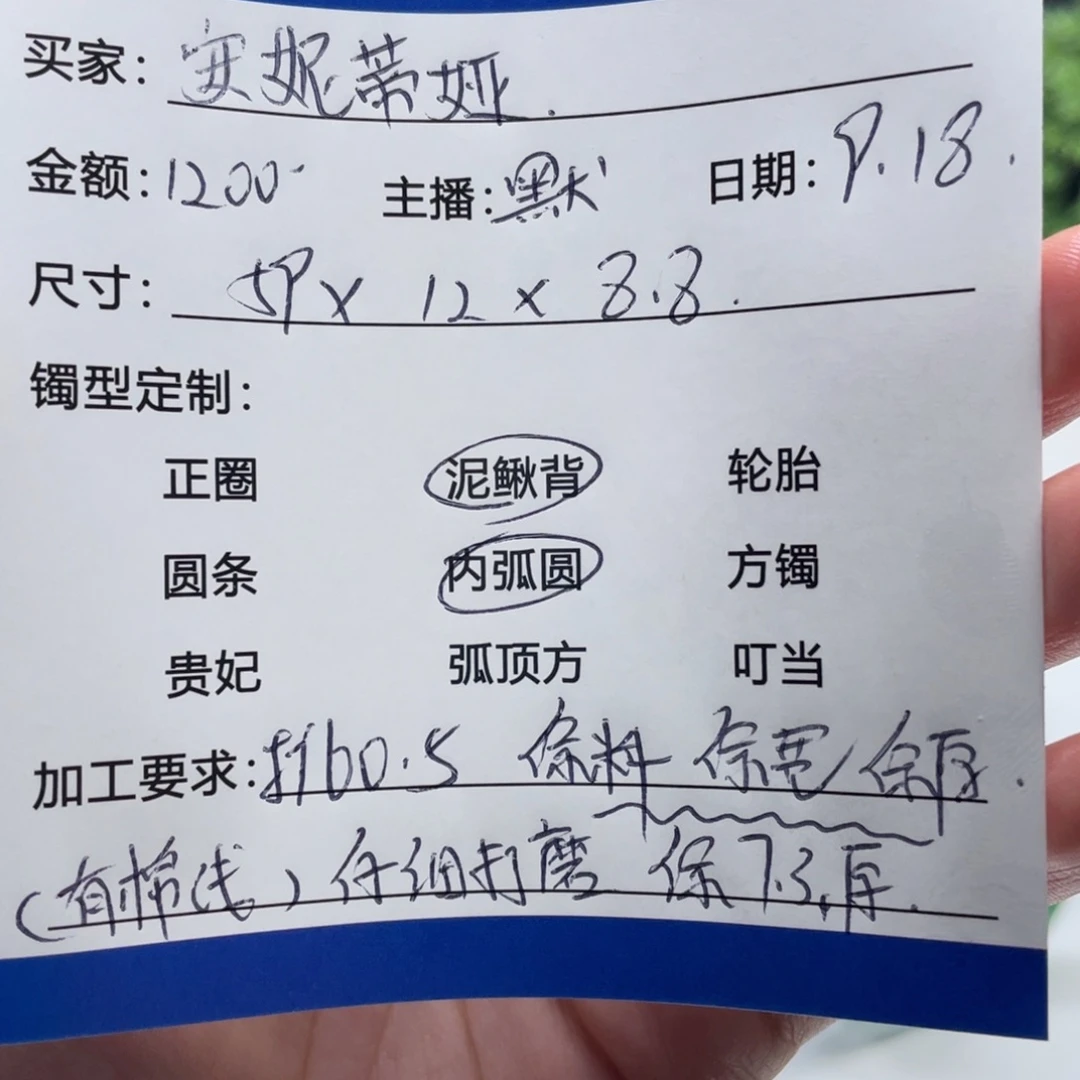 买家: 安妮蒂娅.
金额: 1200 主播: 默 日期: 9.18.
尺寸: 59 x 12 x 8.8.
镯型定制:
正圈 泥鳅背 轮胎
圆条 内弧圆 方镯
贵妃 弧顶方 叮当
加工要求: 打60.5 保料 保宽 保厚.
(有棉线) 仔细打磨 保7.3厚.